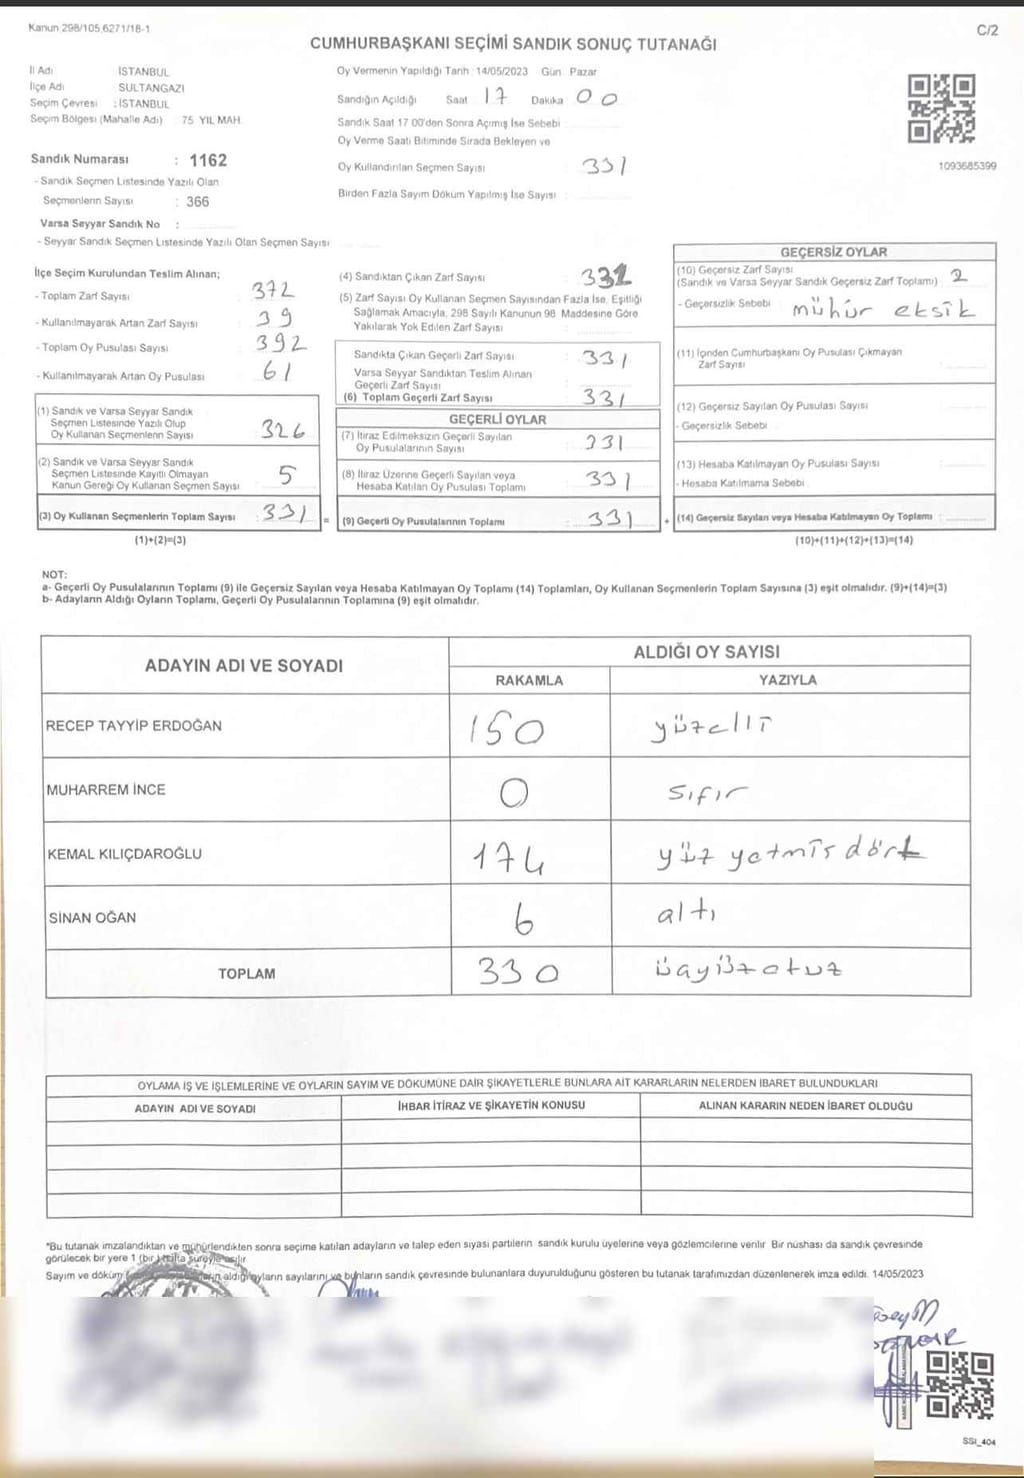 Kanun 298/105,6271/18-1
C/2
CUMHURBAŞKANI SEÇİMİ SANDIK SONUÇ TUTANAĞI
İl Adı İSTANBUL
İlçe Adı SULTANGAZİ
Seçim Çevresi : İSTANBUL
Seçim Bölgesi (Mahalle Adı) 75 YIL MAH
Oy Vermenin Yapıldığı Tarih 14/05/2023 Gün Pazar
Sandığın Açıldığı Saat 17 Dakika 00
Sandık Saat 17 00'den Sonra Açımış İse Sebebi
Oy Verme Saati Bitiminde Sırada Bekleyen ve
Oy Kullandırılan Seçmen Sayısı : 331
Birden Fazla Sayım Döküm Yapılmış İse Sayısı :
1093685399
Sandık Numarası : 1162
- Sandık Seçmen Listesinde Yazılı Olan
Seçmenlerin Sayısı : 366
Varsa Seyyar Sandık No :
- Seyyar Sandık Seçmen Listesinde Yazılı Olan Seçmen Sayısı
İlçe Seçim Kurulundan Teslim Alınan;
- Toplam Zarf Sayısı : 372
- Kullanılmayarak Artan Zarf Sayısı : 39
- Toplam Oy Pusulası Sayısı : 392
- Kullanılmayarak Artan Oy Pusulası : 61
(1) Sandık ve Varsa Seyyar Sandık
Seçmen Listesinde Yazılı Olup
Oy Kullanan Seçmenlerin Sayısı : 326
(2) Sandık ve Varsa Seyyar Sandık
Seçmen Listesinde Kayıtlı Olmayan
Kanun Gereği Oy Kullanan Seçmen Sayısı : 5
(3) Oy Kullanan Seçmenlerin Toplam Sayısı : 331 =
(1)+(2)=(3)
(4) Sandıktan Çıkan Zarf Sayısı :
(5) Zarf Sayısı Oy Kullanan Seçmen Sayısından Fazla İse, Eşitliği
Sağlamak Amacıyla, 298 Sayılı Kanunun 98 Maddesine Göre
Yakılarak Yok Edilen Zarf Sayısı :
Sandıkta Çıkan Geçerli Zarf Sayısı : 331
Varsa Seyyar Sandıktan Teslim Alınan
Geçerli Zarf Sayısı :
(6) Toplam Geçerli Zarf Sayısı : 331
GEÇERLİ OYLAR
(7) İtiraz Edilmeksizin Geçerli Sayılan
Oy Pusulalarının Sayısı : 331
(8) İtiraz Üzerine Geçerli Sayılan veya
Hesaba Katılan Oy Pusulası Toplamı : 331
(9) Geçerli Oy Pusulalarının Toplamı : 331 +
GEÇERSİZ OYLAR
(10) Geçersiz Zarf Sayısı
(Sandık ve Varsa Seyyar Sandık Geçersiz Zarf Toplamı) : 2
- Geçersizlik Sebebi : mühür eksik
(11) İçinden Cumhurbaşkanı Oy Pusulası Çıkmayan
Zarf Sayısı :
(12) Geçersiz Sayılan Oy Pusulası Sayısı :
- Geçersizlik Sebebi
(13) Hesaba Katılmayan Oy Pusulası Sayısı :
- Hesaba Katılmama Sebebi
(14) Geçersiz Sayılan veya Hesaba Katılmayan Oy Toplamı :
(10)+(11)+(12)+(13)=(14)
NOT:
a- Geçerli Oy Pusulalarının Toplamı (9) ile Geçersiz Sayılan veya Hesaba Katılmayan Oy Toplamı (14) Toplamları, Oy Kullanan Seçmenlerin Toplam Sayısına (3) eşit olmalıdır. (9)+(14)=(3)
b- Adayların Aldığı Oyların Toplamı, Geçerli Oy Pusulalarının Toplamına (9) eşit olmalıdır.
ADAYIN ADI VE SOYADI ALDIĞI OY SAYISI
RAKAMLA YAZIYLA
RECEP TAYYİP ERDOĞAN 150 yüzelli
MUHARREM İNCE 0 sıfır
KEMAL KILIÇDAROĞLU 174 yüz yetmis dört
SİNAN OĞAN 6 altı
TOPLAM 330 üçyüzotuz
OYLAMA İŞ VE İŞLEMLERİNE VE OYLARIN SAYIM VE DÖKÜMÜNE DAİR ŞİKAYETLERLE BUNLARA AİT KARARLARIN NELERDEN İBARET BULUNDUKLARI
ADAYIN ADI VE SOYADI İHBAR İTİRAZ VE ŞİKAYETİN KONUSU ALINAN KARARIN NEDEN İBARET OLDUĞU
*Bu tutanak imzalandıktan ve mühürlendikten sonra seçime katılan adayların ve talep eden siyasi partilerin sandık kurulu üyelerine veya gözlemcilerine verilir Bir nüshası da sandık çevresinde
görülecek bir yere 1 (bir) hafta süreyle asılır
Sayım ve döküm aldığı oyların sayılarını ve bunların sandık çevresinde bulunanlara duyurulduğunu gösteren bu tutanak tarafımızdan düzenlenerek imza edildi. 14/05/2023
SSİ_404